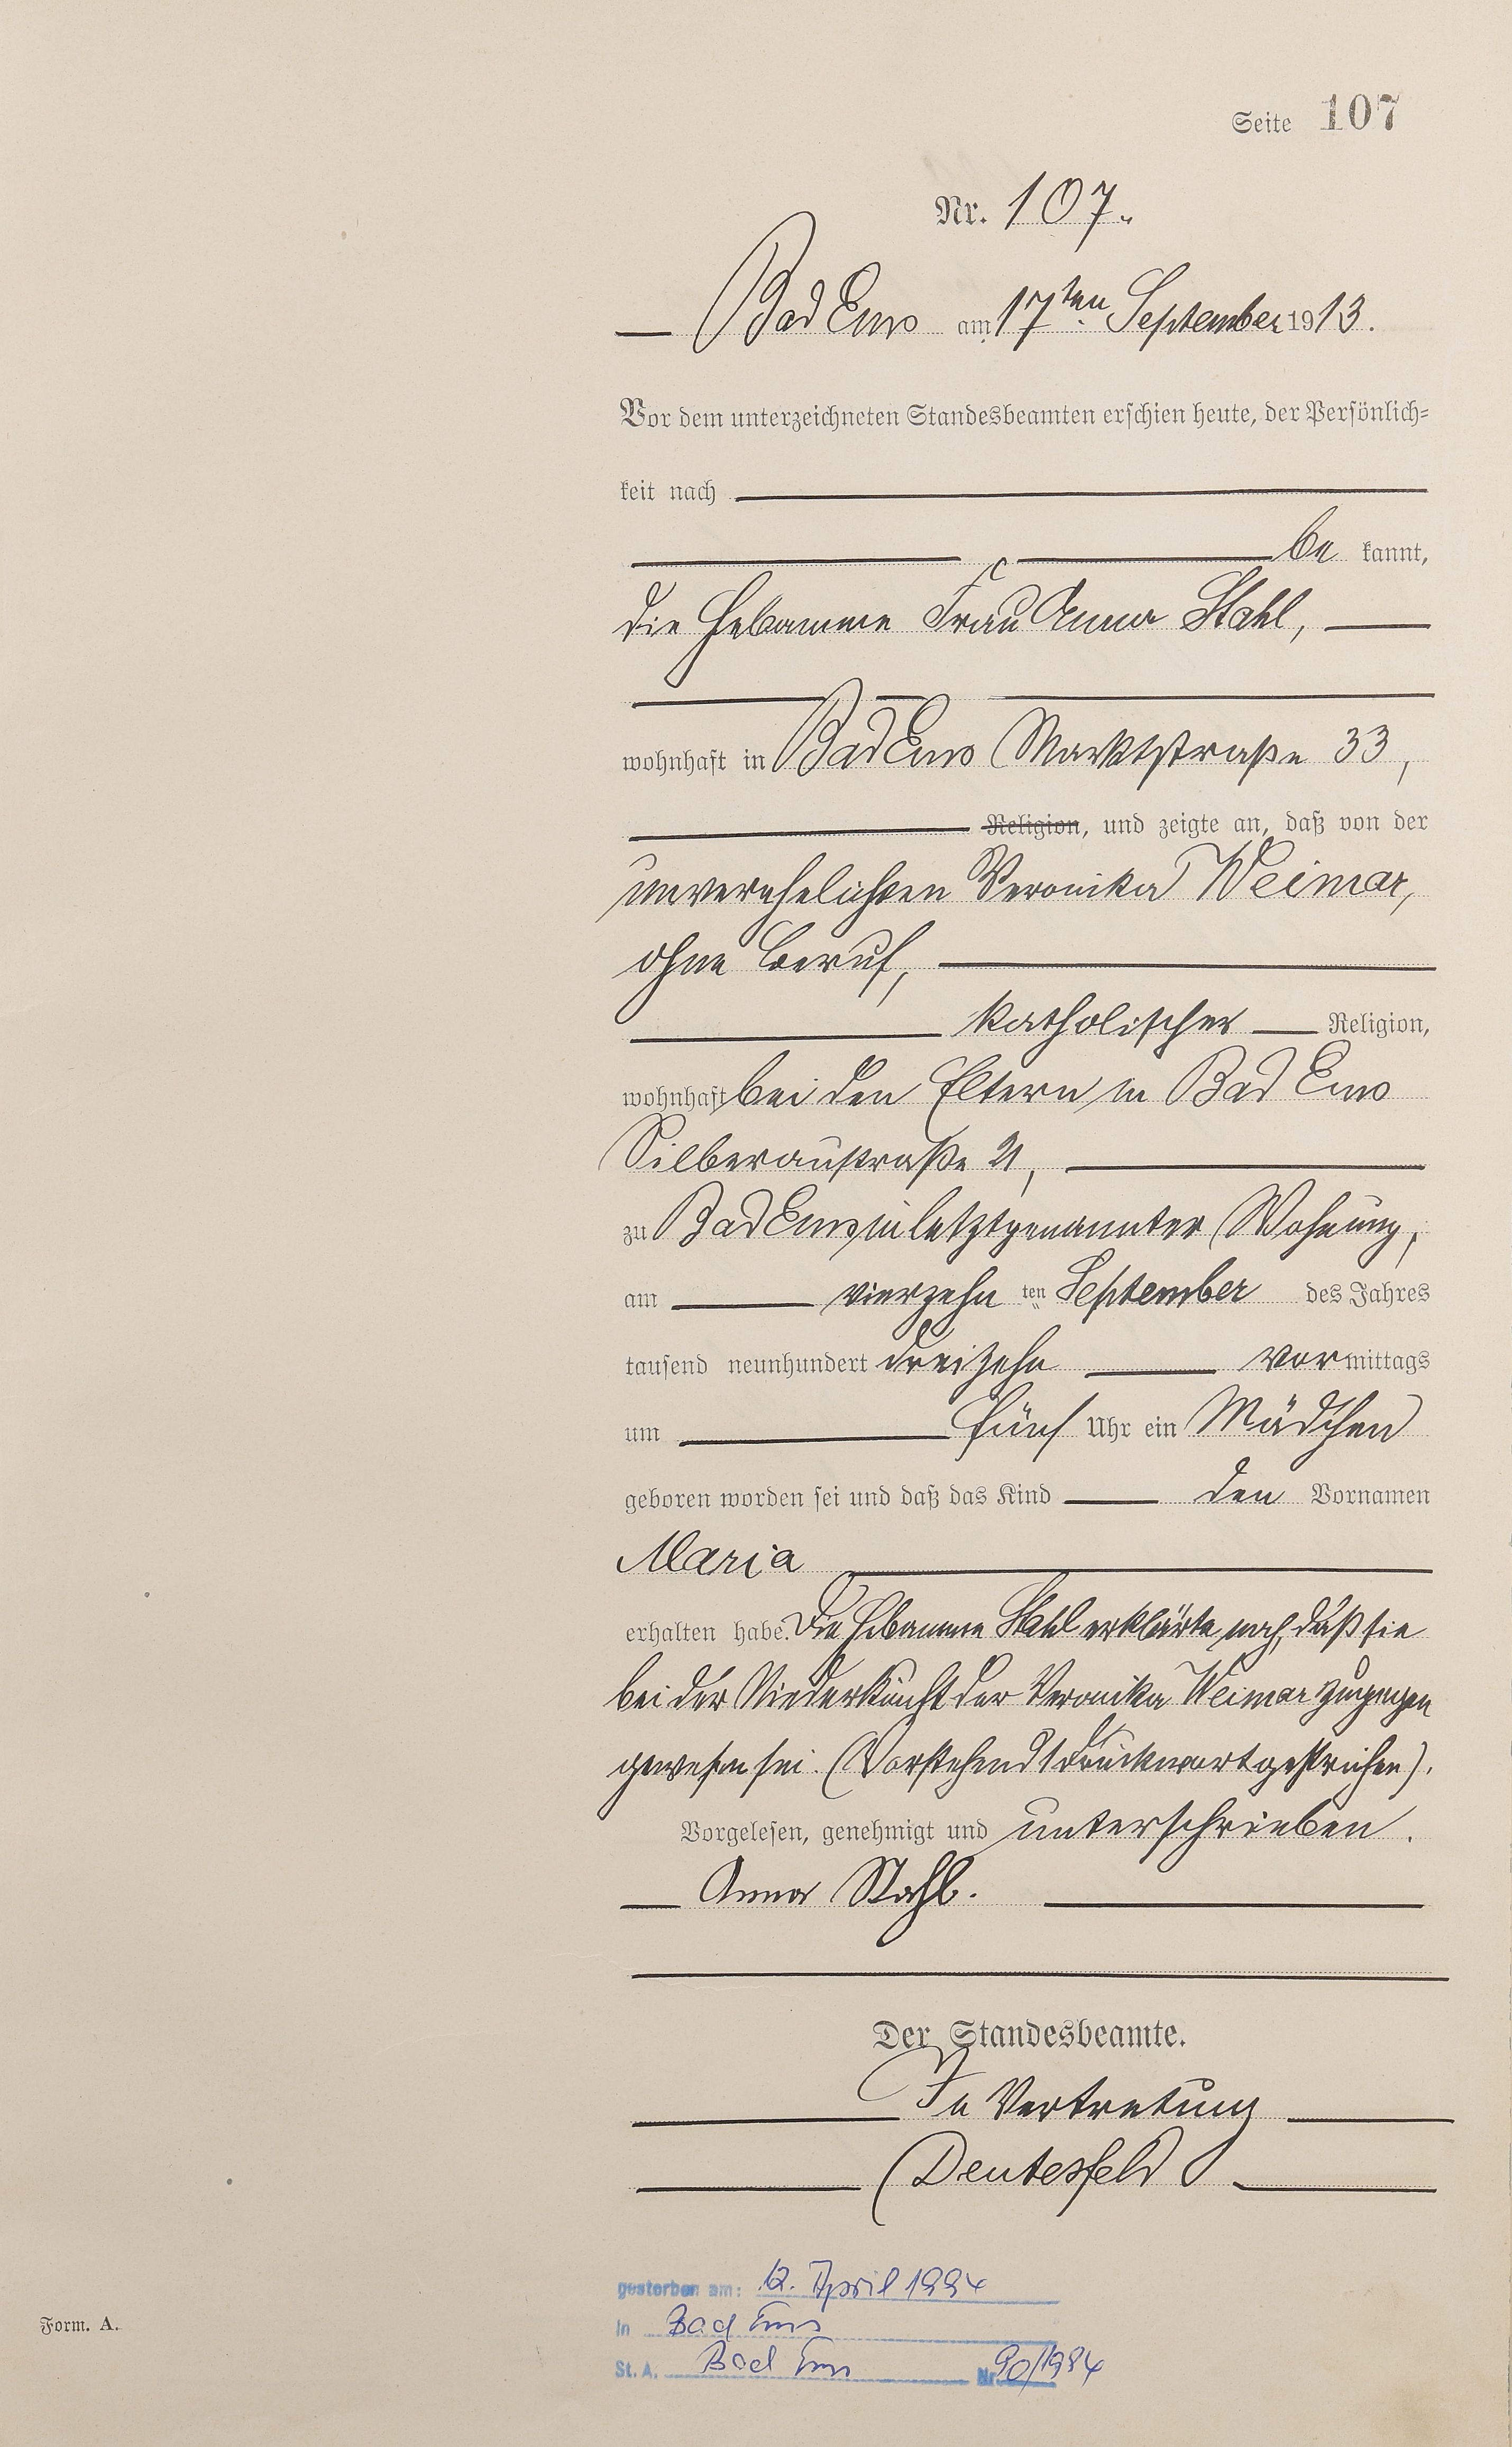 Seite 107
Nr. 107.
Bad Ems am 17ten September 1913.
Vor dem unterzeichneten Standesbeamten erschien heute, der Persönlich-
keit nach
be kannt,
die Hebamme Frau Anna Stahl,
wohnhaft in Bad Ems Marktstraße 33,
Religion, und zeigte an, daß von der
unverehelichten Veronika Weimar,
ohne Beruf,
katholischer Religion,
wohnhaft bei den Eltern in Bad Ems
Silberaustraße 21,
zu Bad Ems in letztgenannter Wohnung,
am vierzehn ten September des Jahres
tausend neunhundert dreizehn vormittags
um fünf Uhr ein Mädchen
geboren worden sei und daß das Kind den Vornamen
Maria
erhalten habe. Die Hebamme Stahl erklärte noch, daß sie
bei der Niederkunft der Veronika Weimar zugegen
gewesen sei. (Vorstehend 1 Druckwort gestrichen).
Vorgelesen, genehmigt und unterschrieben.
Anna Stahl.
Der Standesbeamte.
In Vertretung
Deutesfeld
gestorben am: 12. April 1994
in Bad Ems
St. A. Bad Ems Nr. 90/1994
Form. A.